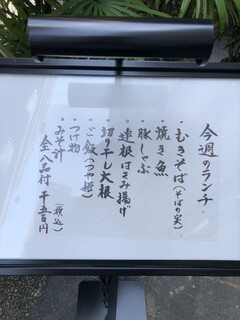 今週のランチ
・むきそば(そばの実)
・焼き魚
・豚しゃぶ
・蓮根はさみ揚げ
・切り干し大根
・ご飯(つや姫)
・つけ物
・みそ汁
全八品付 千五百円(税込)